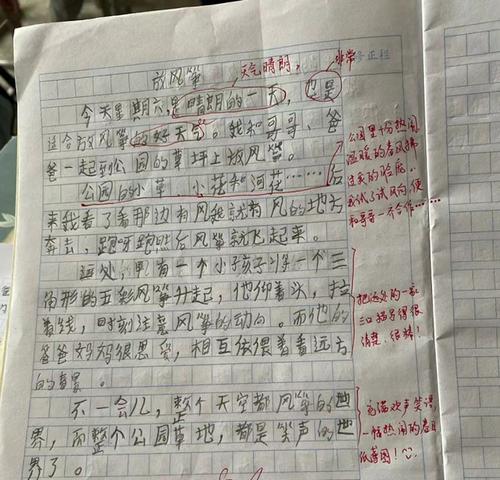 放风筝
天气晴朗,
非常
修正栏
今天星期六,是晴朗的一天,也是
适合放风筝的好天气。我和哥哥、爸
爸一起到公园的草坪上放风筝。
公园的小草、小花和河花……后
来我看了看那边有风我就朝有风的地方
奔去,跑呀跑然后风筝就飞起来。
远处,有一个小孩子一个三
角形的五彩风筝升起,他仰着头,拉
着线,时刻注意风筝的动向。而他的
爸爸妈妈很恩爱,相互依偎着看远方
的春景。
不一会儿,整个天空都风筝的世
界,而整个公园草地,都是笑声的世
界了。
公园里十分热闹
温暖的春风拂
过我的脸庞。
我试了试风向,便
和哥哥一齐合作……
把远处的一家
三口描写得很
清楚,很棒!
充满欢声笑语,
一幅热闹的春日
纸鸢图!